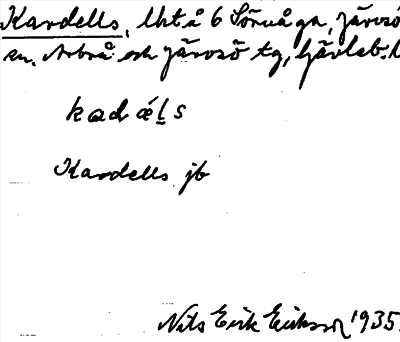 Kardells, lht å 6 Sörvåga, Järvsö
sn. Arbrå och Järvsö tg, Gävleb. l
kadǽls
Kardells jb
Nils Erik Eriksson 1935